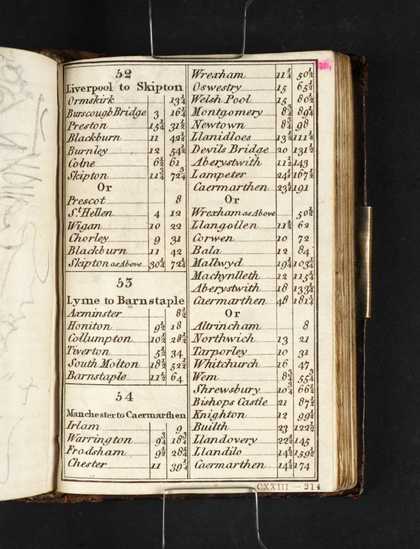 52
Liverpool to Skipton
Ormskirk 13¼
Burscough Bridge 3 16¼
Preston 15¼ 31½
Blackburn 11 42½
Burnley 12 54½
Colne 6½ 61
Skipton 11¾ 72¾
Or
Prescot 8
St. Hellen 4 12
Wigan 10 22
Chorley 9 31
Blackburn 11 42
Skipton as Above 30¼ 72¼
53
Lyme to Barnstaple
Axminster
Honiton 9½ 18
Collumpton 10½ 28½
Tiverton 5½ 34
South Molton 18½ 52½
Barnstaple 11½ 64
54
Manchester to Caermarthen
Irlam 9
Warrington
Frodsham 9½ 28¼
Chester 11 39¼
Wrexham 11¼ 50½
Oswestry 15 65½
Welsh Pool 15 80½
Montgomery 8¾ 89¼
Newtown 8¾ 98
Llanidloes
Devils Bridge 20 131½
Aberystwith 11½ 143
Lampeter 24½ 167½
Caermarthen 23½ 191
Or
Wrexham as Above 50½
Llangollen 11½ 62
Corwen 10 72
Bala 12 84
Mallwyd
Mackynlleth 12 115¼
Aberystwith 18 133¼
Caermarthen 48 181¼
Or
Altrincham 8
Northwich 13 21
Tarporley 10 31
Whitchurch 16 47
Wem 8¾ 55¾
Shrewsbury 10¾ 66½
Bishops Castle 21 87½
Knighton 12 99½
Builth 23 122½
Llandovery 22½ 145
Llandilo 14½ 159½
Caermarthen 14½ 174
CXXIII - 214